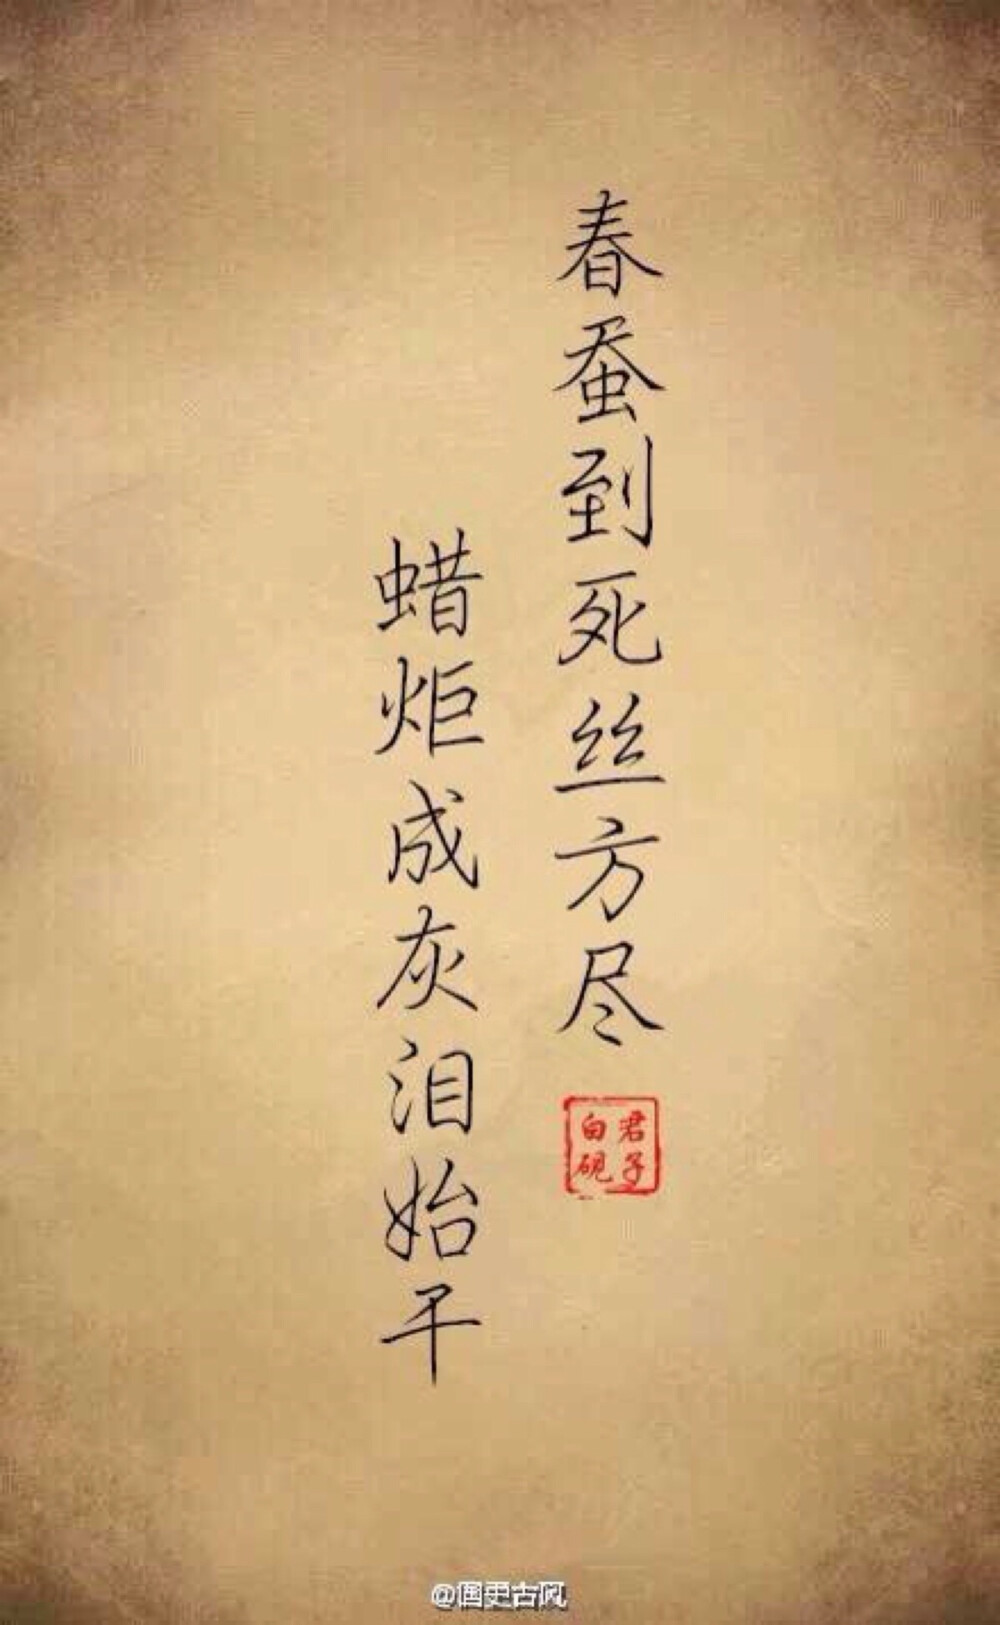 春蚕到死丝方尽
蜡炬成灰泪始干
君子
白砚
@国史古风